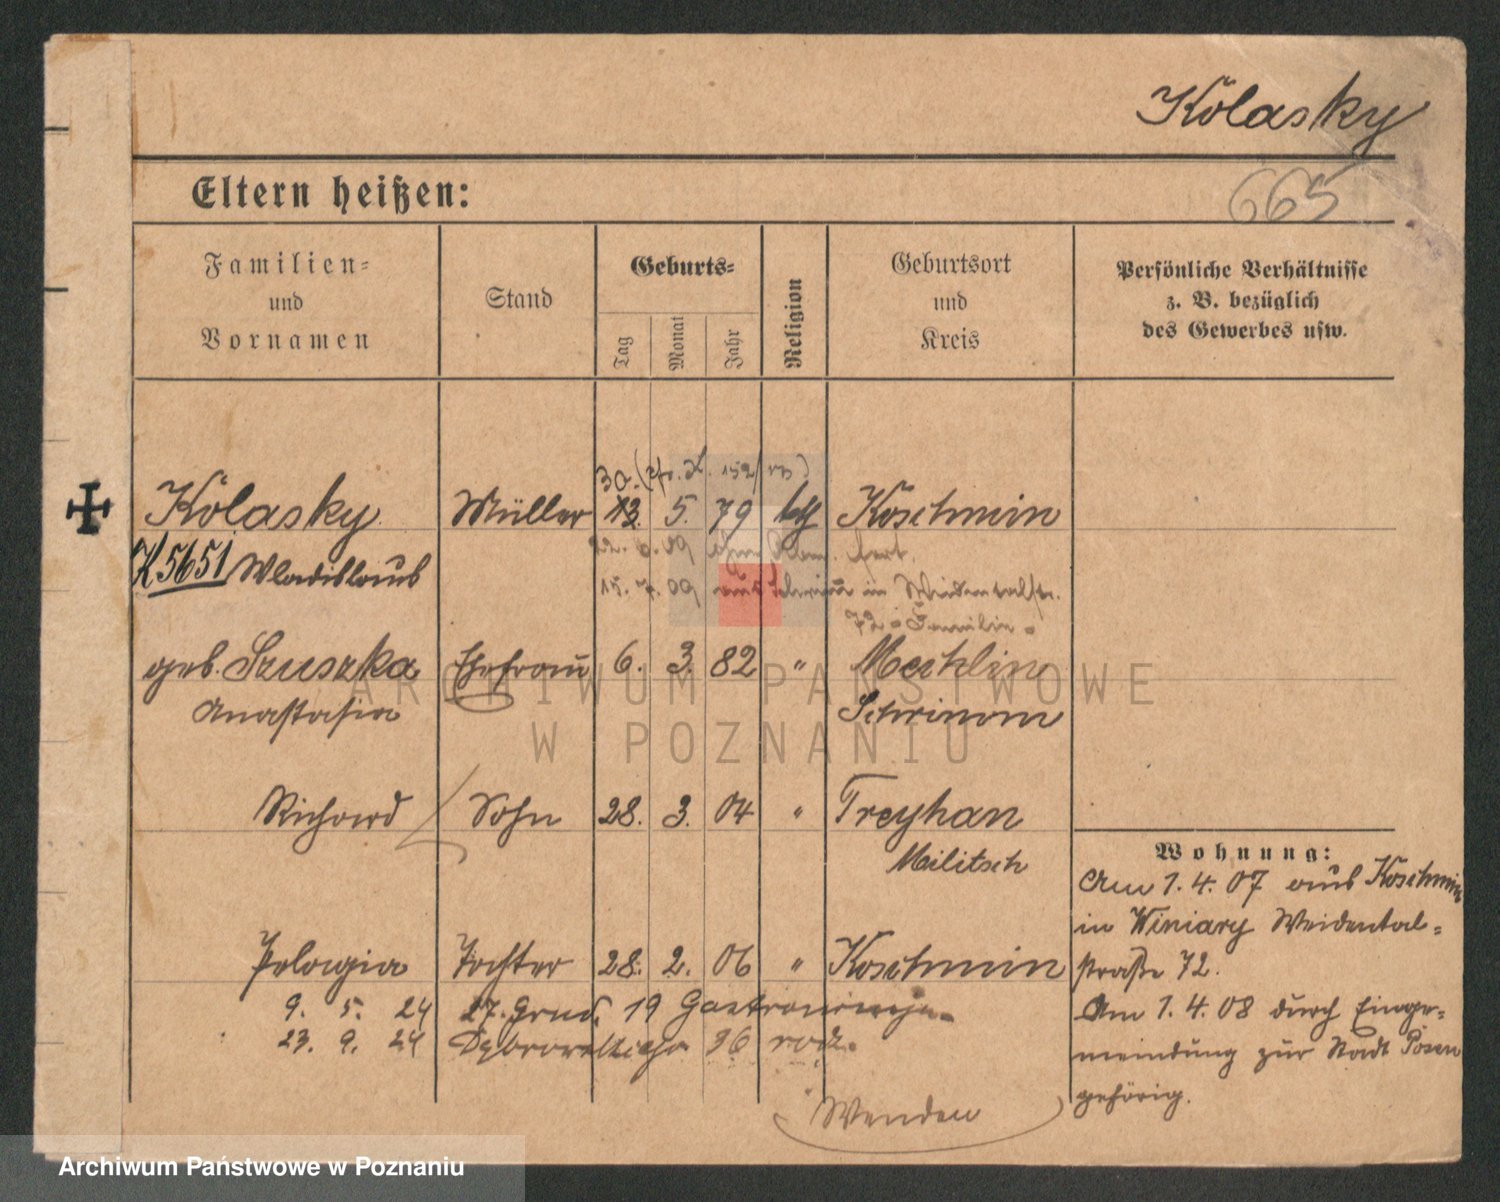 Kolasky
665
Eltern heißen:
Familien-
und
Vornamen
Stand
Geburts-
Tag
Monat
Jahr
Religion
Geburtsort
und
Kreis
Persönliche Verhältnisse
z. B. bezüglich
des Gewerbes usw.
30.
Kolasky Müller 13. 5. 79 Koschmin
K 5651 Wladislaus
15. 7. 09 aus in Weidentalstr.
72 - Familie -
geb. Szuszka Ehefrau 6. 3. 82 " Mechlin
Anastasia Schrimm
Richard Sohn 28. 3. 04 " Freyhan
Militsch
Pelagia Tochter 28. 2. 06 " Koschmin
9. 5. 24 27. Grud. 19
23. 9. 24 Dąbrowskiego 36 rodz.
Wohnung:
Am 1. 4. 07 aus Koschmin
in Winiary Weidental-
straße 72.
Am 1. 4. 08 durch Einge-
meindung zur Stadt Posen
gehörig.
Wenden
ARCHIWUM PAŃSTWOWE
W POZNANIU
Archiwum Państwowe w Poznaniu